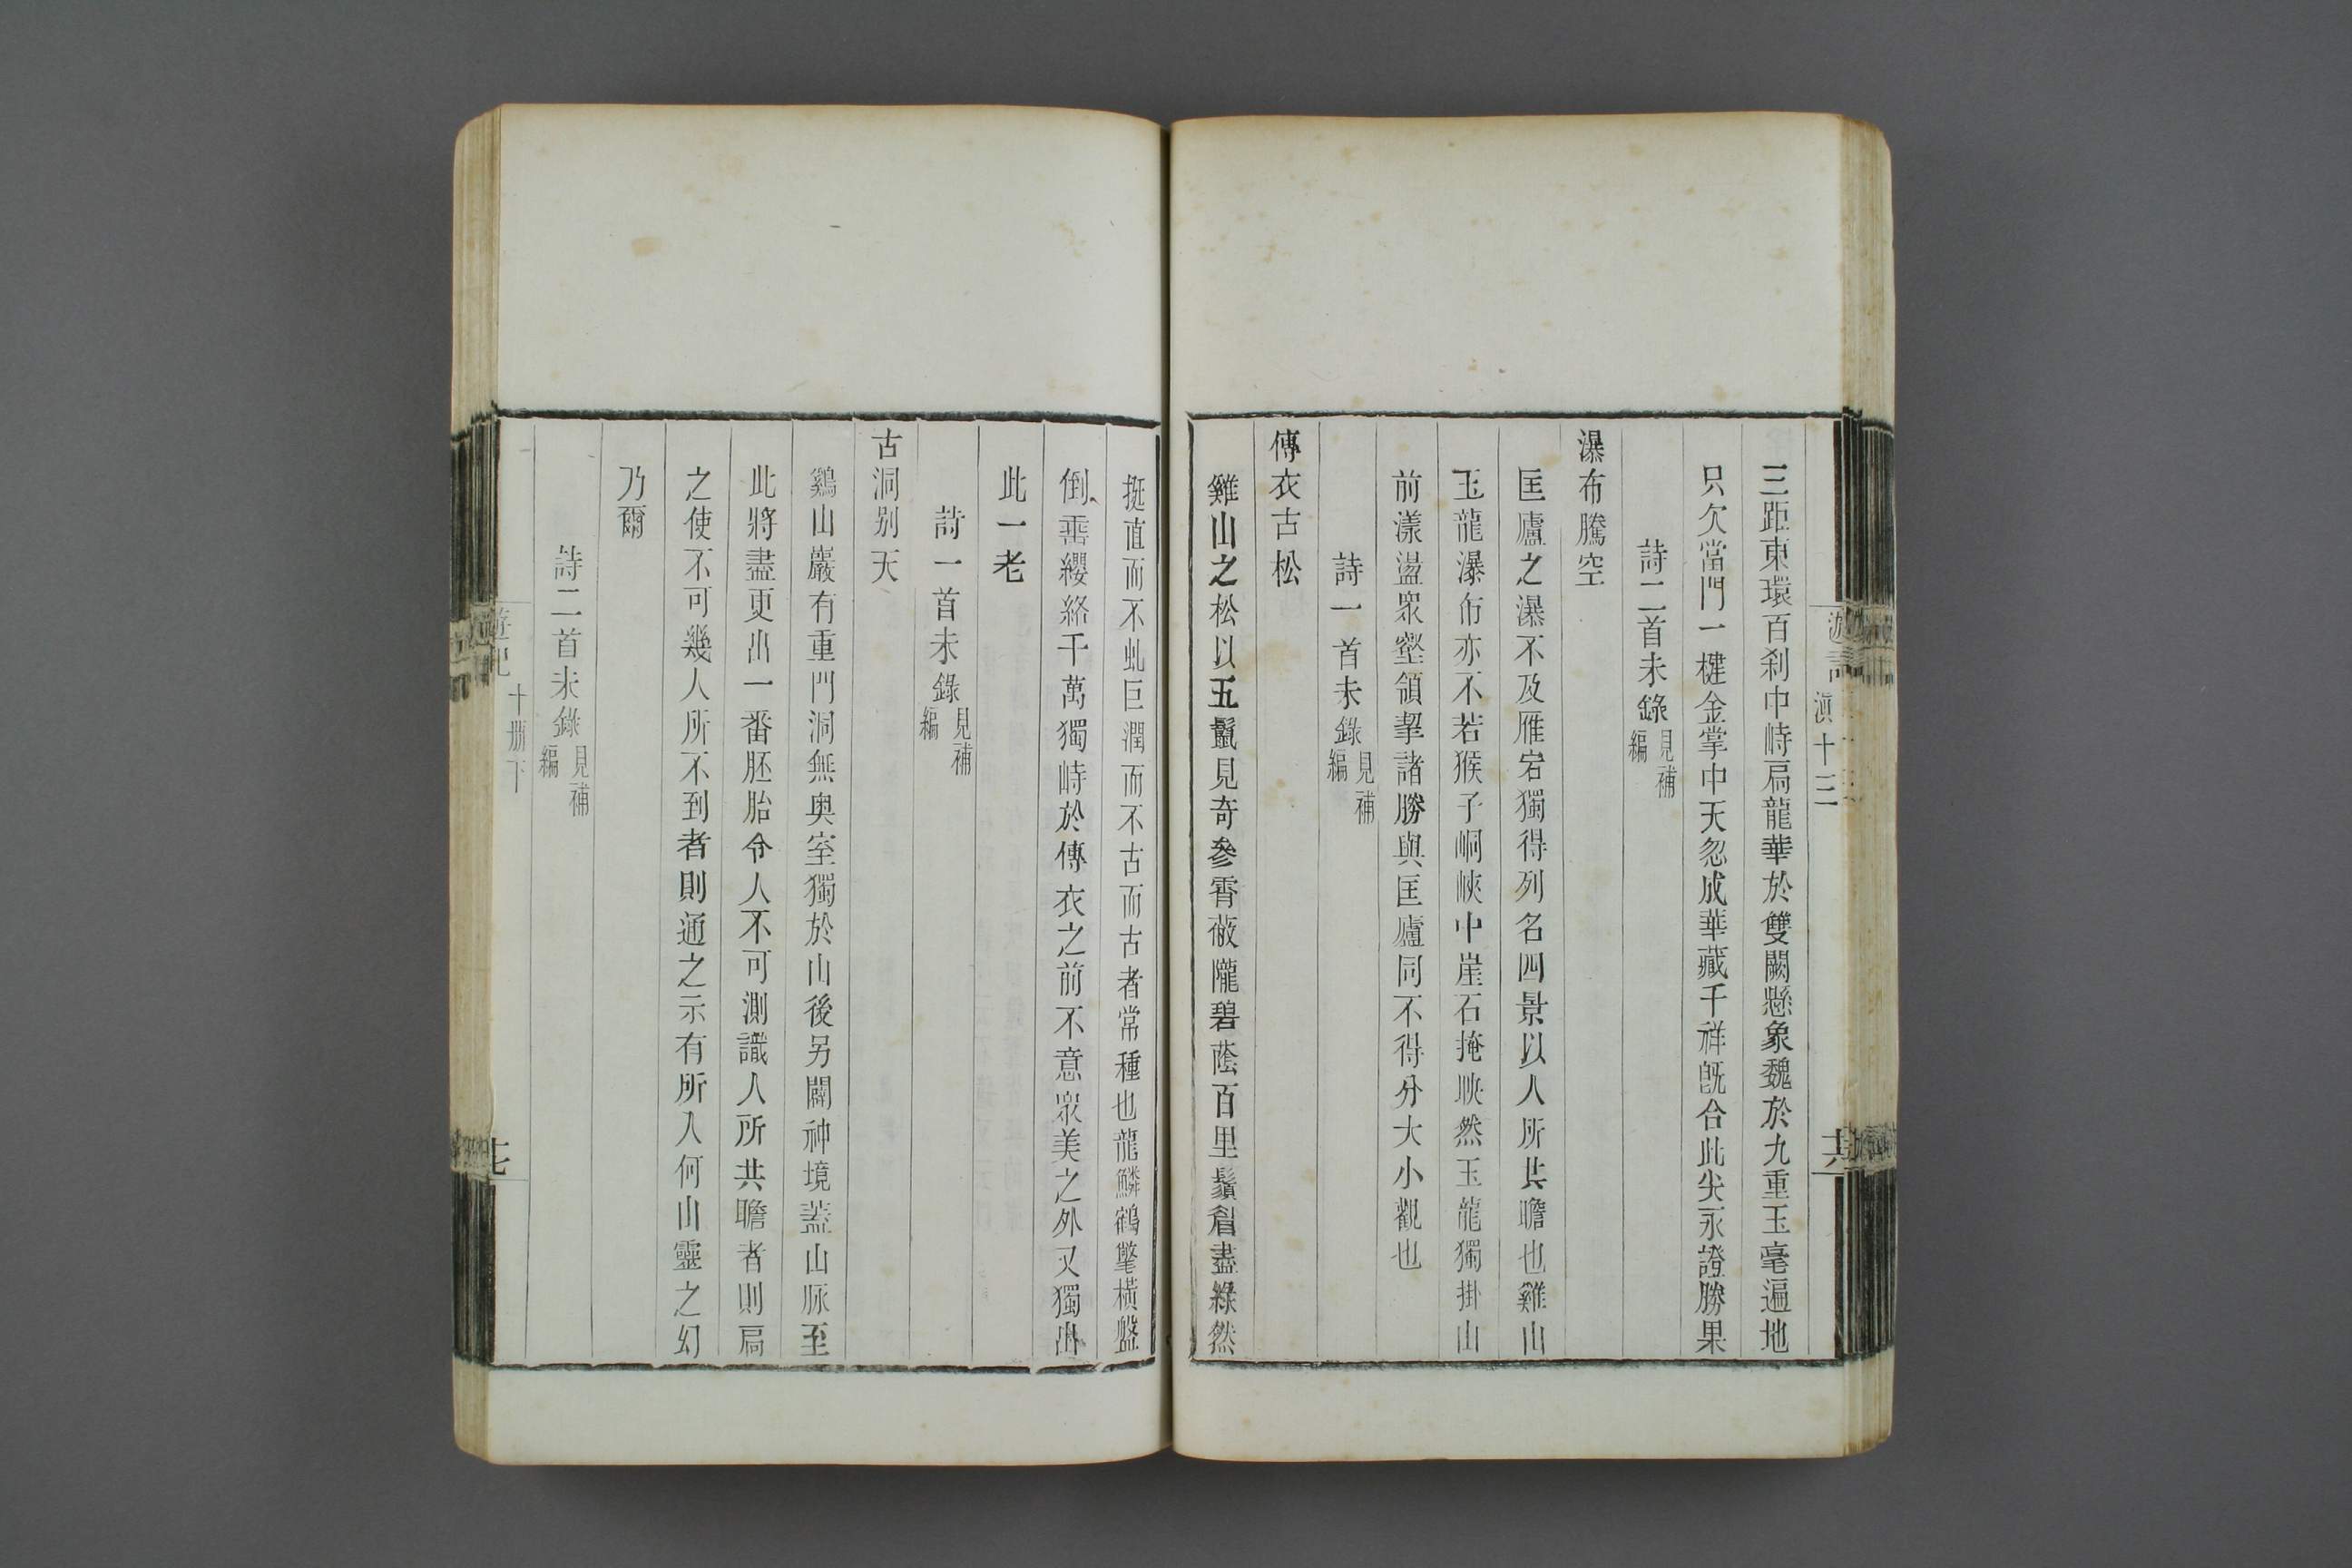 三距東環百刹中峙扃龍華於雙闕懸象魏於九重玉毫遍地
只欠當門一楗金掌中天忽成華藏千祥旣合此尖永證勝果
詩二首未錄見補編
瀑布騰空
匡廬之瀑不及雁宕獨得列名四景以人所共瞻也雞山
玉龍瀑布亦不若猴子峒峽中崖石掩映然玉龍獨掛山
前漾盪眾壑領挈諸勝與匡廬同不得分大小觀也
詩一首未錄見補編
傳衣古松
雞山之松以五鬣見奇參霄蔽隴碧蔭百里鬚眉盡綠然
挺直而不虬巨潤而不古而古者常種也龍鱗鶴氅橫盤
倒垂纓絡千萬獨峙於傳衣之前不意眾美之外又獨出
此一老
詩一首未錄見補編
古洞別天
鷄山巖有重門洞無奥室獨於山後另闢神境蓋山脈至
此將盡更出一番胚胎令人不可測識人所共瞻者則扃
之使不可幾人所不到者則通之示有所入何山靈之幻
乃爾
詩二首未錄見補編
遊記 滇十三
遊記 十册下